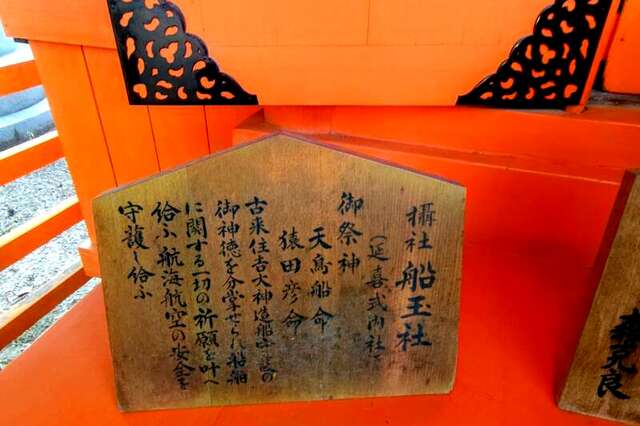 攝社 船玉社
(延喜式内社)
御祭神
天鳥船命
猿田彦命
古来住吉大神造船 の
御神徳を分掌せられ船舶
に関する一切の祈願を叶へ
給ふ航海航空の安全を
守護し給ふ
良